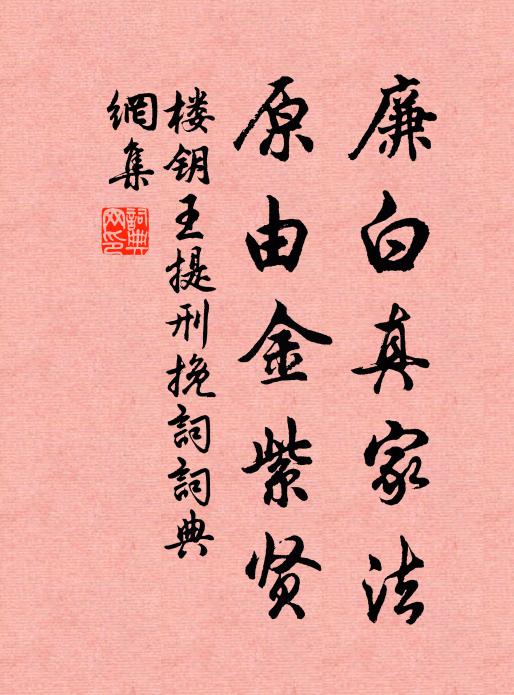 廉白真家法
原由金紫贤
楼钥王提刑挽詞詞典
網集
詞典
网印